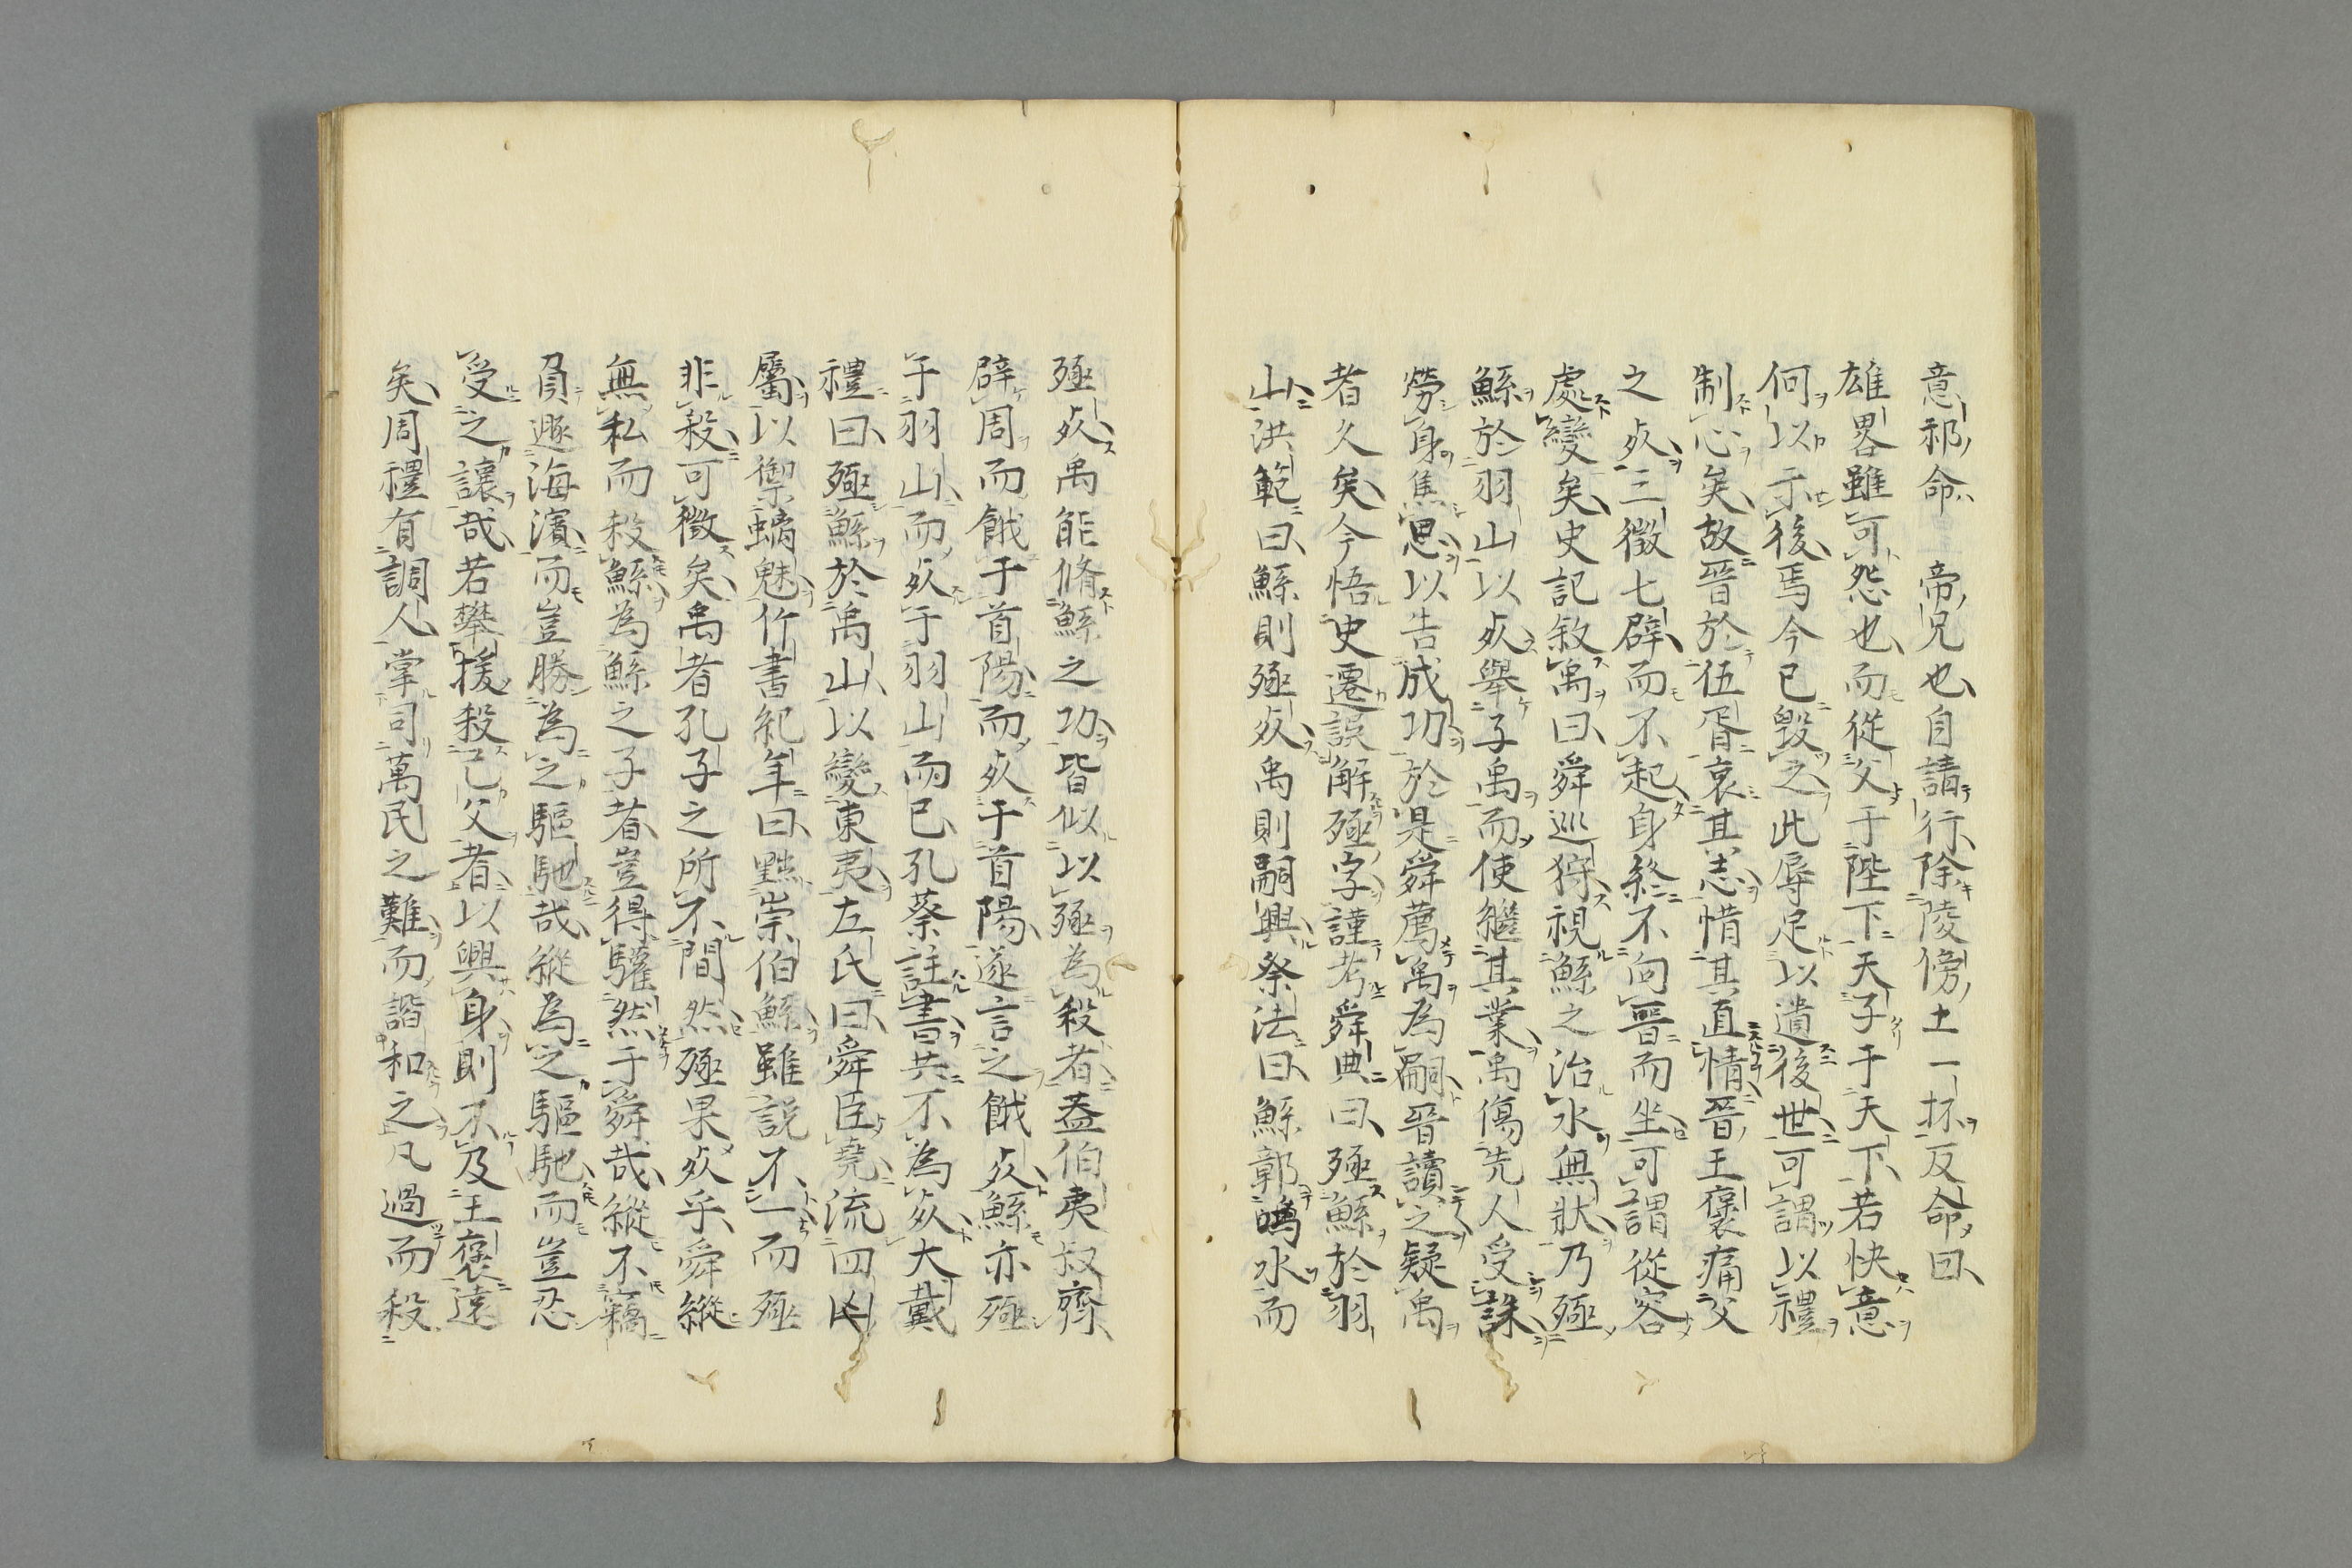 意祁命帝兄也自請行除陵傍土一抔反命曰
雄畧雖可怨也而從父于陛下天子于天下若快意
何以示後焉今已毀之此辱足以遺後世可謂以禮
制心矣故晉於伍胥哀其志惜其直情晉王裒痛父
之㱙三徵七辟而不起身終不向晉而坐可謂從容
處變矣史記敘禹曰舜巡狩視鯀之治水無狀乃殛
鯀於羽山以㱙舉子禹而使繼其業禹傷先人受誅
勞身焦思以告成功於是舜薦禹為嗣晉讀之疑禹
者久矣今悟史遷誤解殛字謹考舜典曰殛鯀於羽
山洪範曰鯀則殛㱙禹則嗣興祭法曰鯀鄣鴻水而
殛㱙禹能脩鯀之功皆似以殛為殺者葢伯夷叔齊
辟周而餓于首陽而㱙于首陽遂言之餓㱙鯀亦殛
于羽山而㱙于羽山而已孔蔡註書共不為㱙大戴
禮曰殛鯀於禹山以變東夷左氏曰舜臣堯流四凶
屬以禦螭魅竹書紀年曰黜崇伯鯀雖說不一而殛
非殺可徵矣禹者孔子之所不間然殛果㱙乎舜縱
無私而殺鯀為鯀之子者豈得驩然于舜哉縱不竊
負遯海濱而豈勝為之驅馳哉縱為之驅馳而豈忍
受之讓哉若攀援殺己父者以興身則不及王裒遠
矣周禮有調人掌司萬民之難而諧和之凡過而殺